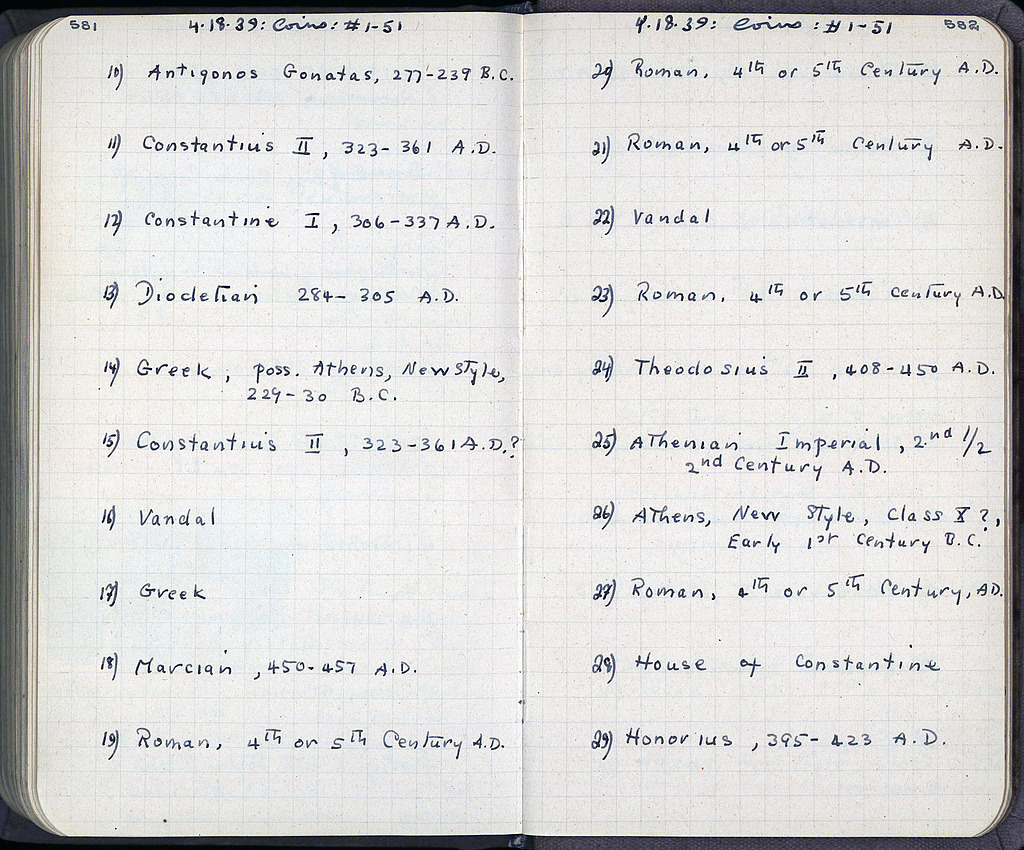 581 4.18.39: Coins: #1-51
10) Antigonos Gonatas, 277-239 B.C.
11) Constantius II, 323-361 A.D.
12) Constantine I, 306-337 A.D.
13) Diocletian 284-305 A.D.
14) Greek, poss. Athens, New Style,
229-30 B.C.
15) Constantius II, 323-361 A.D.?
16) Vandal
17) Greek
18) Marcian, 450-457 A.D.
19) Roman, 4th or 5th Century A.D.
4.18.39: Coins: #1-51 582
20) Roman, 4th or 5th Century A.D.
21) Roman, 4th or 5th Century A.D.
22) Vandal
23) Roman, 4th or 5th Century A.D.
24) Theodosius II, 408-450 A.D.
25) Athenian Imperial, 2nd 1/2
2nd Century A.D.
26) Athens, New Style, Class X?,
Early 1st Century B.C.
27) Roman, 4th or 5th Century, AD.
28) House of Constantine
29) Honorius, 395-423 A.D.